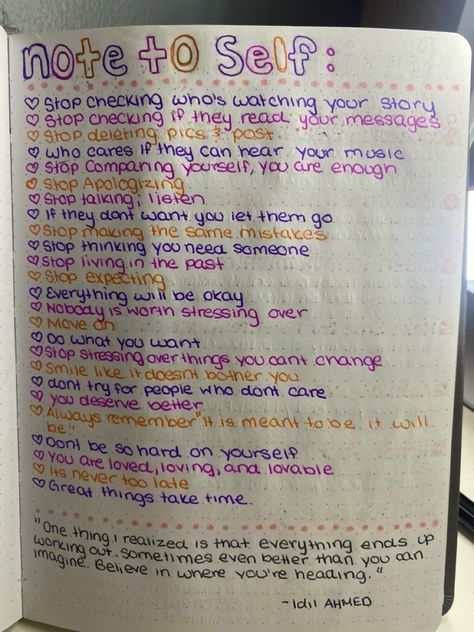 note to self:
♡ Stop checking who's watching your story
♡ Stop checking if they read your messages
♡ Stop deleting pics & post
♡ who cares if they can hear your music
♡ Stop Comparing yourself, you are enough
♡ Stop Apologizing
♡ Stop talking; listen
♡ If they dont want you let them go
♡ Stop making the same mistakes
♡ Stop thinking you need someone
♡ Stop living in the past
♡ Stop expecting
♡ Everything will be okay
♡ Nobody is worth stressing over
♡ Move on
♡ Do what you want
♡ Stop stressing over things you cant change
♡ Smile like it doesnt bother you
♡ dont try for people who dont care
♡ you deserve better
♡ Always remember "it is meant to be it will
be"
♡ Dont be so hard on yourself
♡ You are loved, loving, and lovable
♡ Its never too late
♡ Great things take time.
"One thing i realized is that everything ends up
working out. sometimes even better than you can
imagine. Believe in where you're heading."
- Idil AHMED